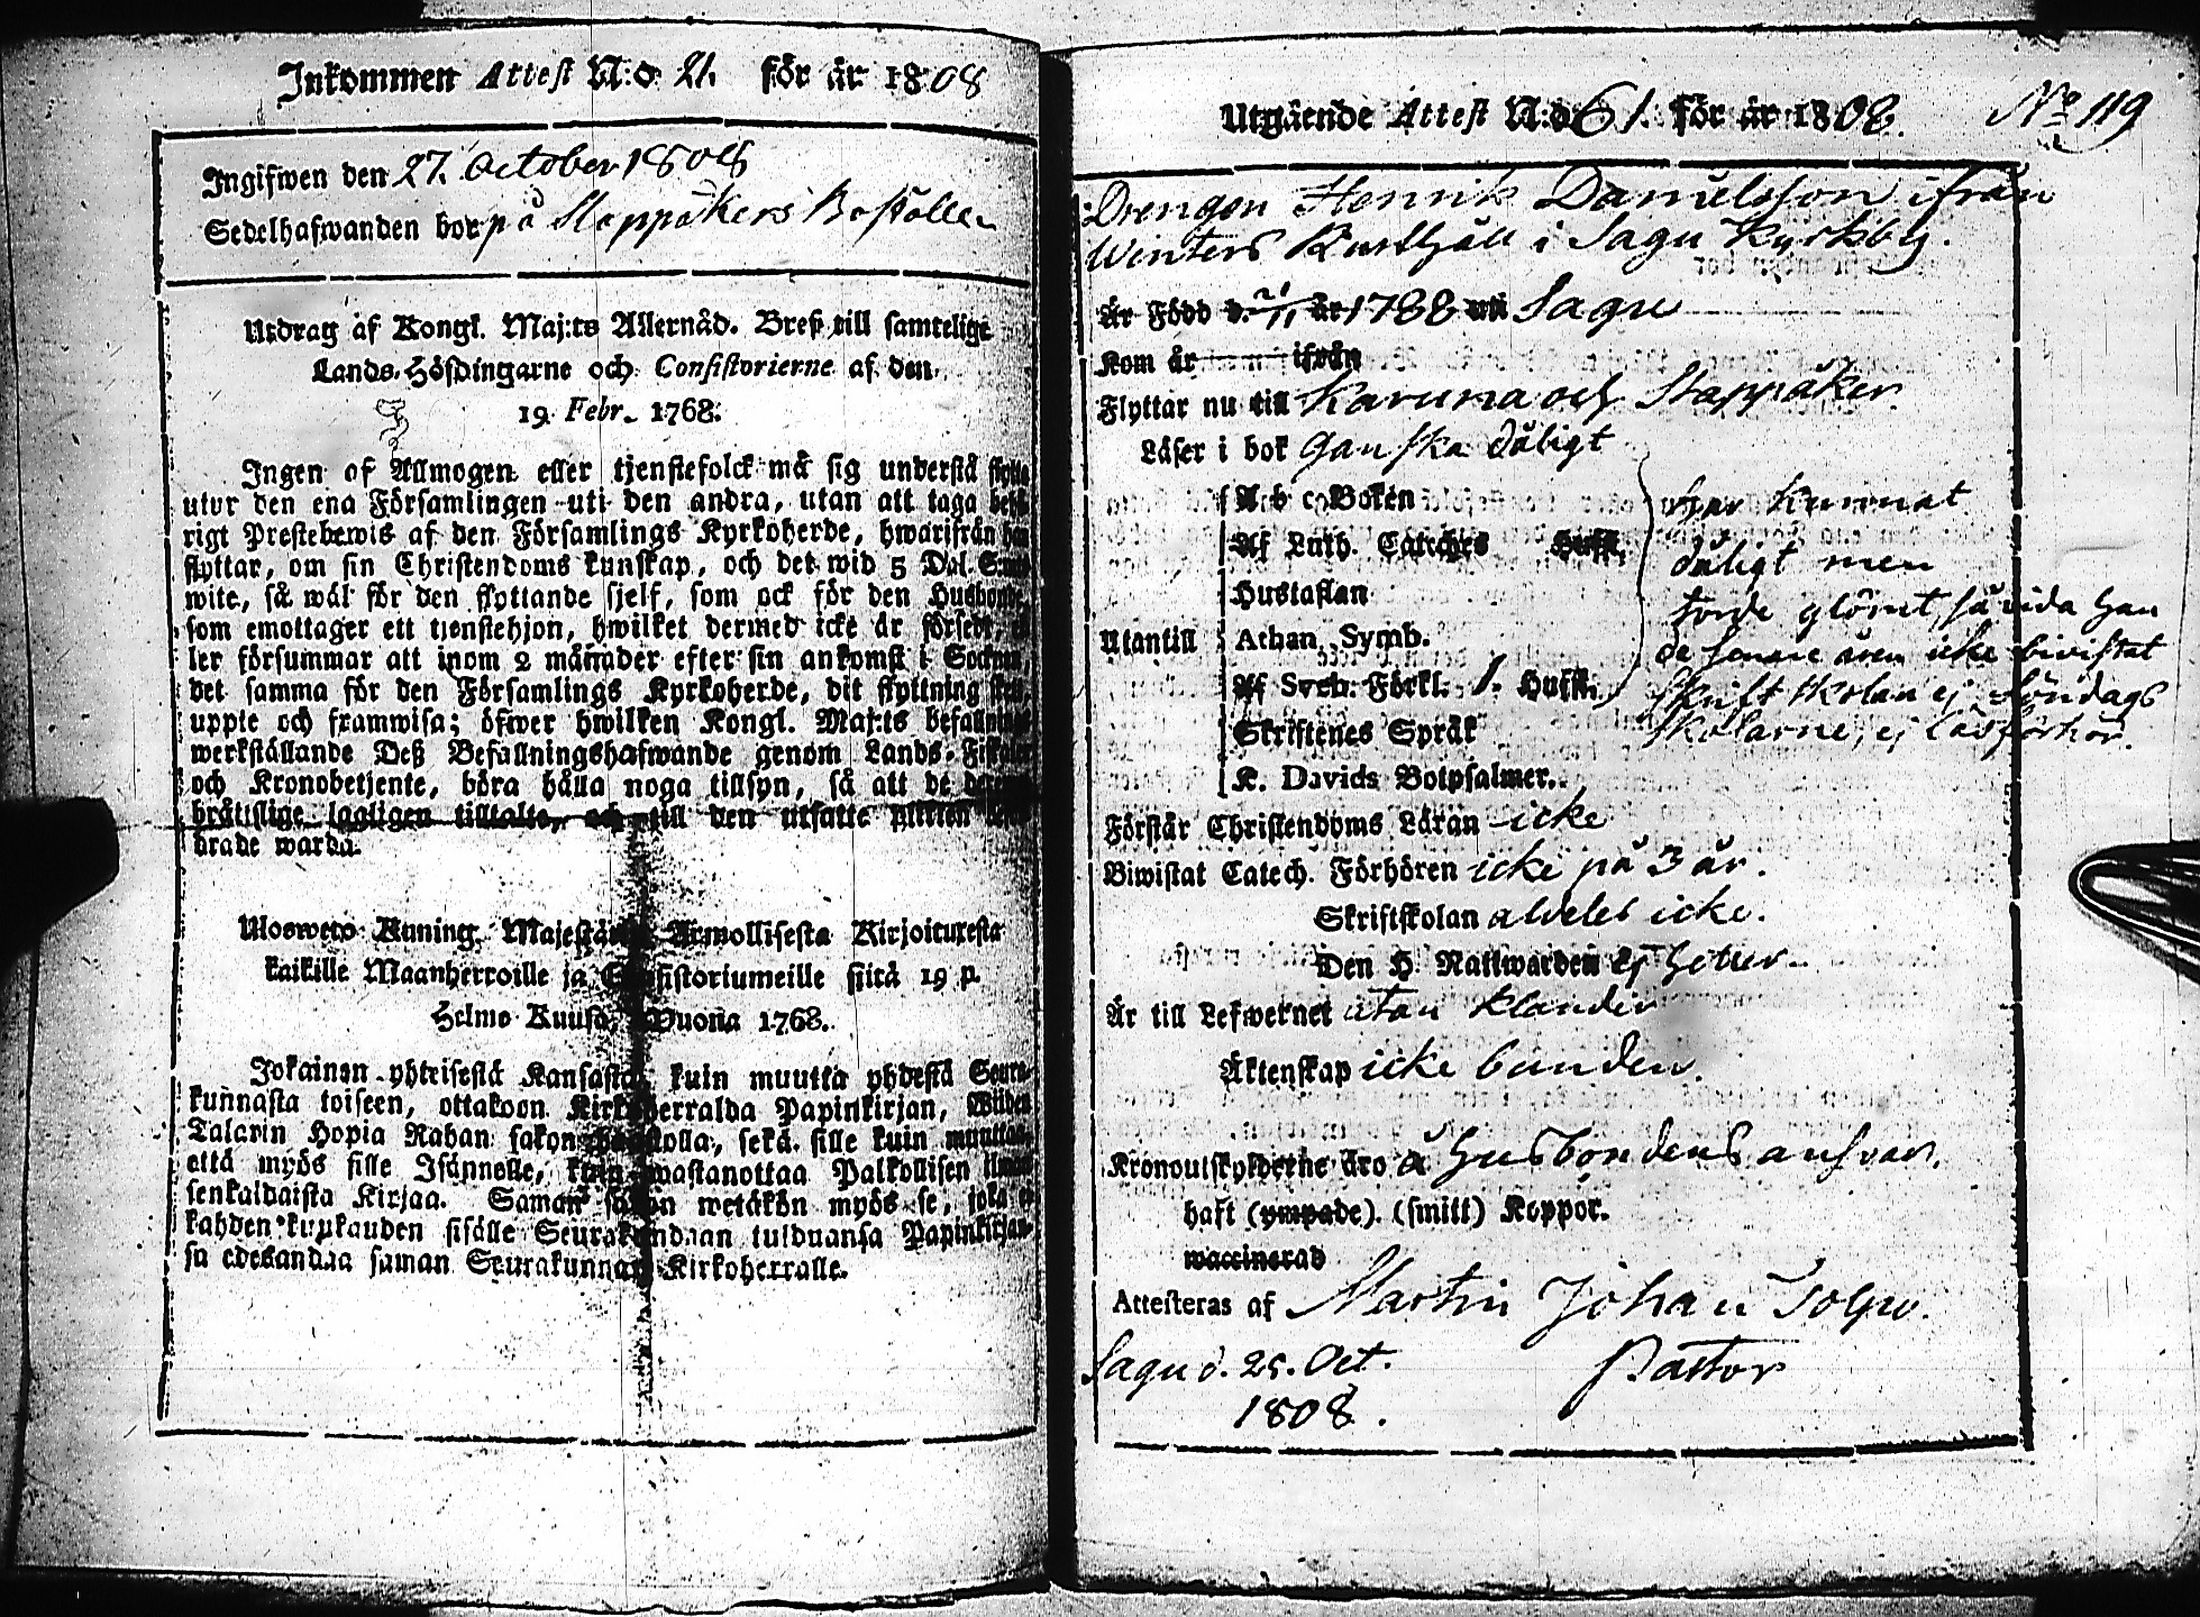 Inkommen Attest N:o 21. för år 1808
Ingifwen den 27. October 1808
Sedelhafwanden bor på Stappåkers Boställe
Utdrag af Kongl. Maj:ts Allernåd. Bref till samtelige
Lands-Höfdingarne och Consistorierne af den
19 Febr. 1768.
Ingen af Allmogen eller tjenstefolck må sig understå flytta
utur den ena Församlingen uti den andra, utan att taga behö-
rigt Prestebewis af den Församlings Kyrkoherde, hwarifrån han
flyttar, om sin Christendoms kunskap, och det wid 5 Dal. S:mts
wite, så wäl för den flyttande sjelf, som ock för den Husbonde,
som emottager ett tjenstehjon, hwilket dermed icke är försedt, el-
ler försummar att inom 2 månader efter sin ankomst i Socknen,
det samma för den Församlings Kyrkoherde, dit flyttning sker,
uppte och framwisa; öfwer hwilken Kongl. Maj:ts befallnings
werkställande Deß Befallningshafwande genom Lands-Fiskaler
och Kronobetjente, böra hålla noga tillsyn, så att de
brättslige lagligen tilltalte, och till den utsatte plikten
ärade warda.
Ulosweto Kuning. Majestätin Armollisesta Kirjoituxesta
kaikille Maanherroille ja Consistoriumeille siitä 19 p.
Helmo Kuusa, Wuonna 1768.
Jokainen yhteisestä Kansasta, kuin muutta yhdestä Seura-
kunnasta toiseen, ottakoon Kirkoherralda Papinkirjan, Wiiden
Talarin Hopia Rahan sakon haastolla, sekä sille kuin muuttaa,
että myös sille Isännelle, kuin wastanottaa Palkollisen ilman
senkaldaista Kirjaa. Saman sakon wetäkön myös se, joka ei
kahden kuukauden sisälle Seurakundaan tulduansa Papinkirjan-
sa edesandaa saman Seurakunnan Kirkoherralle.
Utgående Attest N:o 61. för år 1808. No 119
Drengen Henrik Danielsson ifrån
Winters Rusthåll i Sagu Kyrkby.
Är Född d. 21/11 år 1788 uti Sagu
Kom år ifrån
Flyttar nu till Karuna och Stappåker
Läser i bok ganska dåligt
A b c Boken
Af Luth. Cateches Hufst.
Hustaflan
Utantill Athan. Symb.
Af Sveb. Förkl. 1. Hufst.
Skriftenes Språk
K. Davids Botpsalmer.
har kunnat
dåligt men
torde glömt, så vida han
de senare åren icke bivistat
Skriftskolan ej Söndags
skolarne, ej läsförhör.
Förstår Christendoms Läran icke
Biwistat Catech. Förhören icke på 3 år.
Skriftskolan alldeles icke.
Den H. Nattwarden ej heller.
Är till Lefwernet utan klander
Äktenskap icke bunden.
Kronoutskylderne äro å husbondens answar.
haft (ympade). (smitt) Koppor.
waccinerad
Attesteras af Martin Johan Tolpo.
Sagu d. 25. Oct. Pastor
1808.